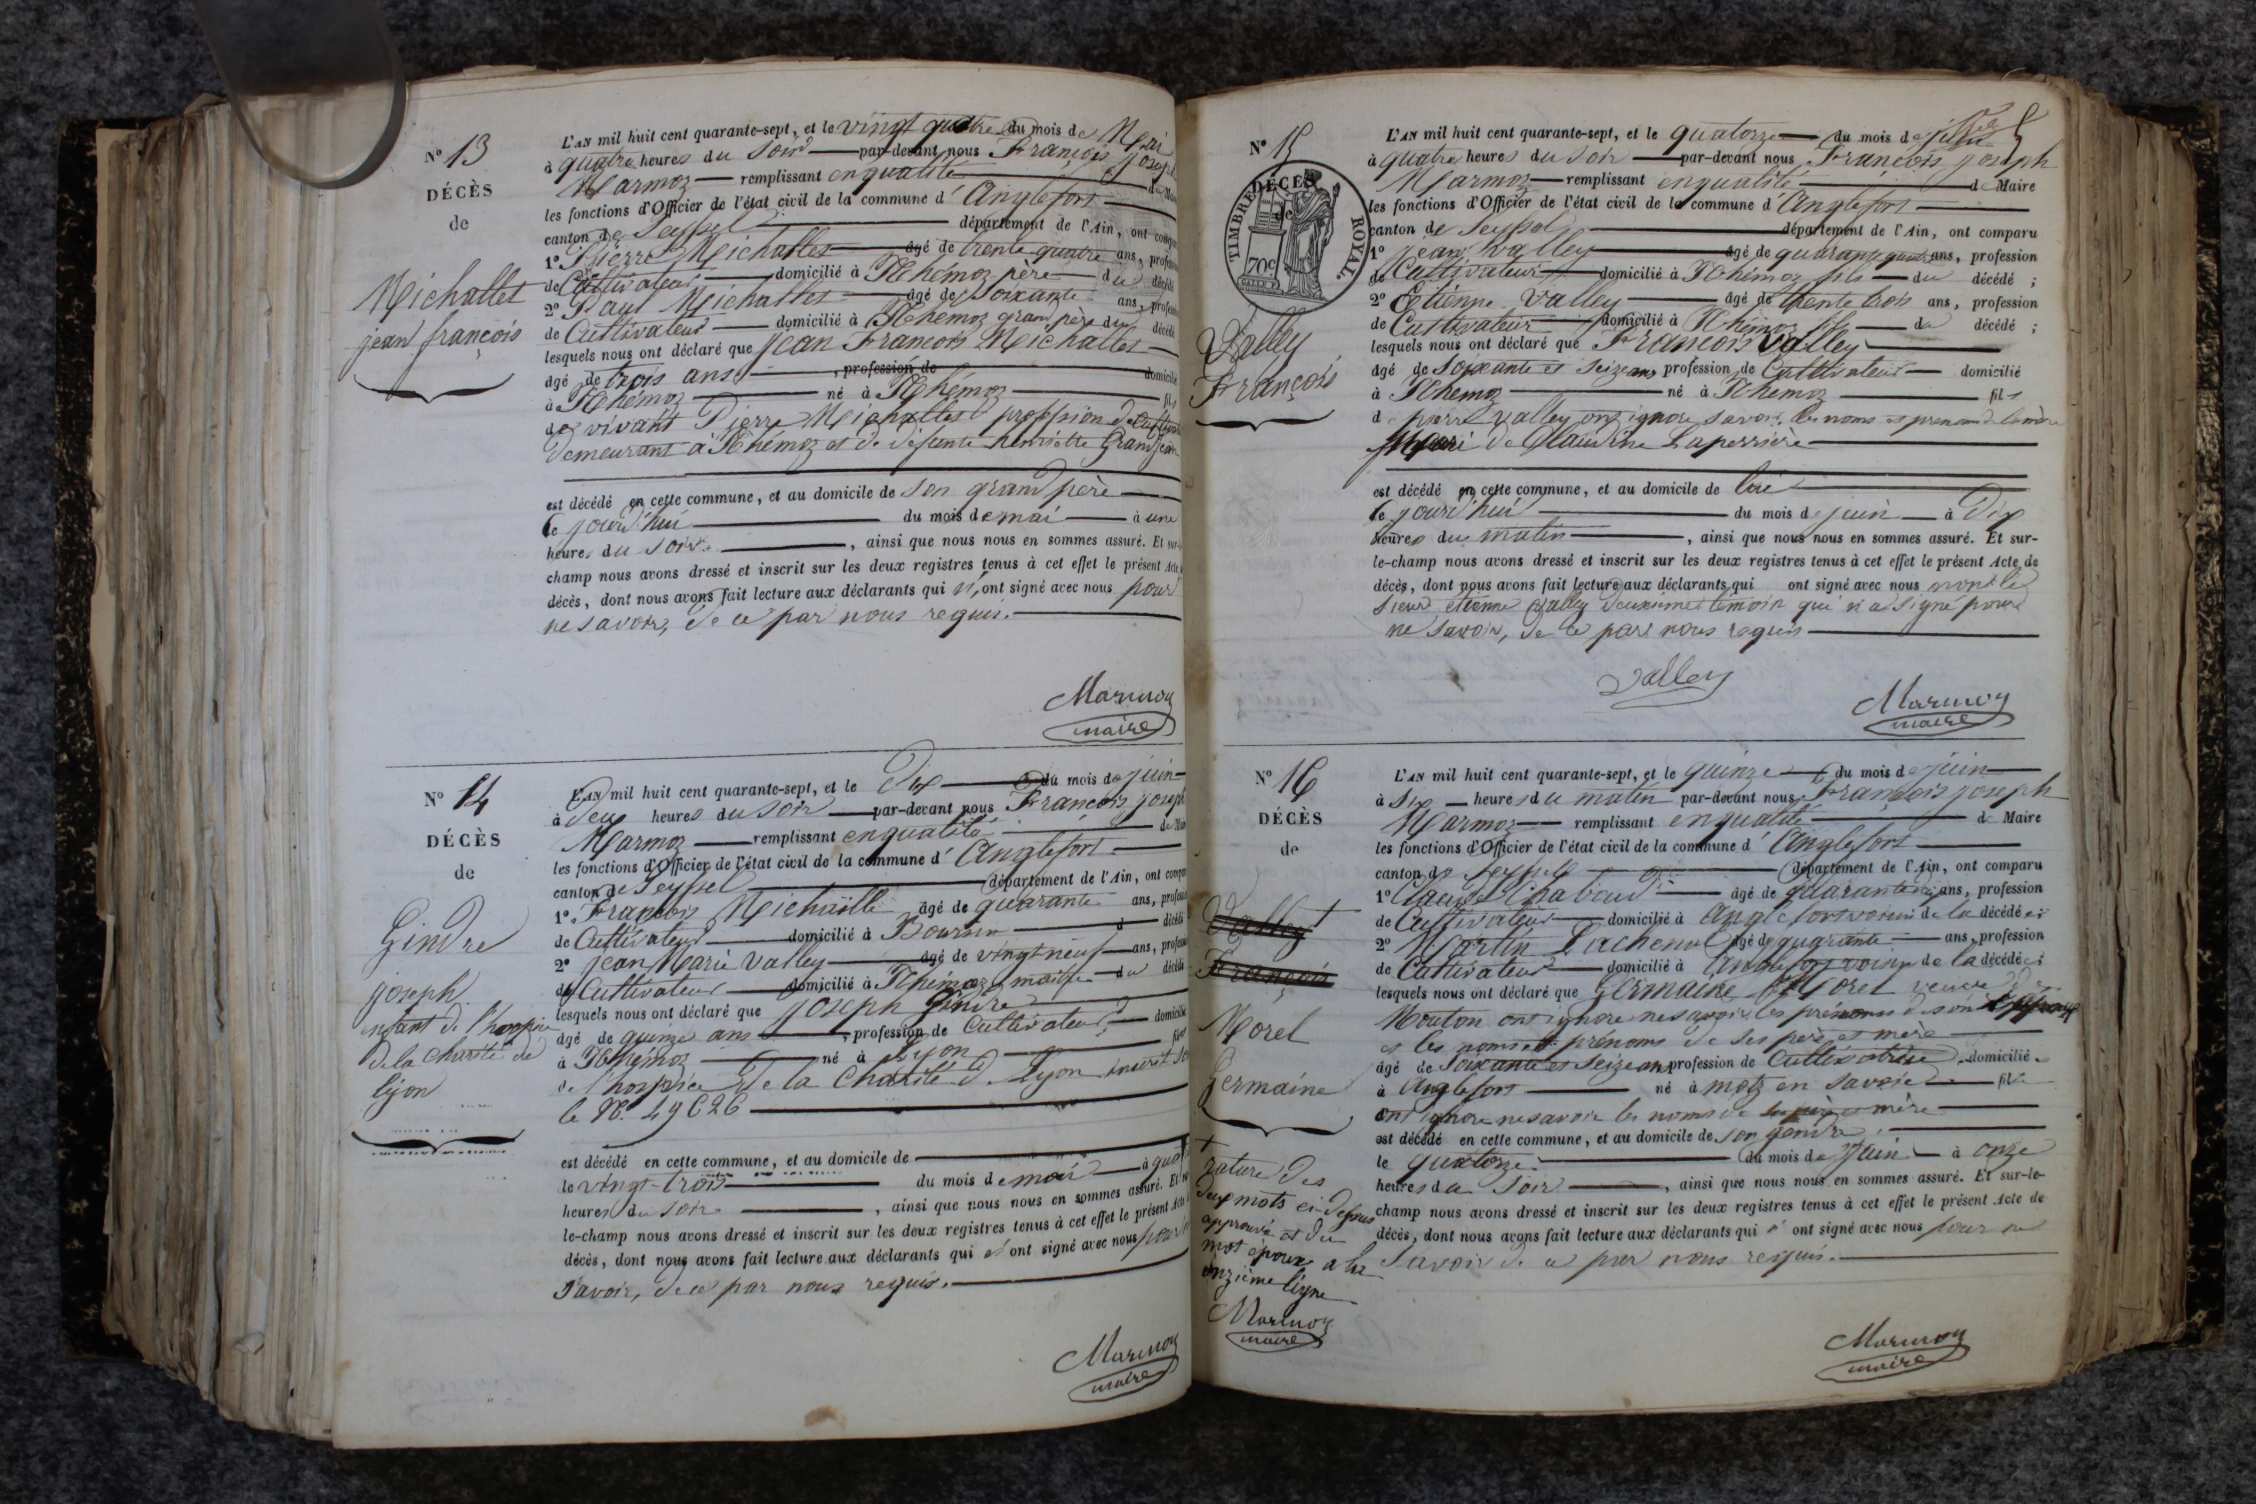 N° 13
DÉCÈS
de
Michallet
jean françois
L'AN mil huit cent quarante-sept, et le vingt quatre du mois de Mai
à quatre heures du soir par-devant nous François joseph
Marmoz remplissant en qualité de
les fonctions d'Officier de l'état civil de la commune d'Anglefort
canton de Seyssel département de l'Ain, ont
1° Pierre Michallet âgé de trente quatre ans,
de Cultivateur domicilié à Thémoz père du décédé
2° Paul Michallet âgé de Soixante ans,
de Cultivateur domicilié à Thémoz grand père du décédé
lesquels nous ont déclaré que Jean François Michallet
âgé de trois ans, profession de domicilié
à Thémoz né à Thémoz fils
de vivant Pierre Michallet proffsion de
demeurant à Thémoz et de défunte henriette Grandjean
est décédé en cette commune, et au domicile de son grand père
le jourd'hui du mois de mai à une
heures du soir, ainsi que nous nous en sommes assuré. Et sur-
champ nous avons dressé et inscrit sur les deux registres tenus à cet effet le présent Acte
décès, dont nous avons fait lecture aux déclarants qui n'ont signé avec nous pour
ne savoir, de ce par nous requis.
Marmoz
maire
N° 14
DÉCÈS
de
Gindre
joseph
enfant de l'hospice
de la charité de
lyon
L'AN mil huit cent quarante-sept, et le Dix du mois de juin
à deux heures du soir par-devant nous François joseph
Marmoz remplissant en qualité de
les fonctions d'Officier de l'état civil de la commune d'Anglefort
canton de Seyssel département de l'Ain, ont
1° François Michaille âgé de quarante ans,
de Cultivateur domicilié à Boursin d décédé
2° jean Marie Valley âgé de vingt neuf ans,
de Cultivateur domicilié à Thémoz maitre du décédé
lesquels nous ont déclaré que joseph Gindre
âgé de quinze ans, profession de Cultivateur, domicilié
à Thémoz né à Lyon fils
de l'hospice de la Charité de Lyon inscrit
le N° 49626
est décédé en cette commune, et au domicile de
le vingt-trois du mois de mai à
heures du soir, ainsi que nous nous en sommes assuré. Et
le-champ nous avons dressé et inscrit sur les deux registres tenus à cet effet le présent Acte
décès, dont nous avons fait lecture aux déclarants qui n'ont signé avec nous pour
savoir, de ce par nous requis.
Marmoz
maire
N° 15
DÉCÈS
de
TIMBRE ROYAL
70c
Valley
François
L'AN mil huit cent quarante-sept, et le quatorze du mois de juin
à quatre heures du soir par-devant nous François joseph
Marmoz remplissant en qualité de Maire
les fonctions d'Officier de l'état civil de la commune d'Anglefort
canton de Seyssel département de l'Ain, ont comparu
1° jean Valley âgé de quarante quatre ans, profession
de Cultivateur domicilié à Thémoz fils du décédé ;
2° Etienne Valley âgé de trente trois ans, profession
de Cultivateur domicilié à Thémoz fils du décédé ;
lesquels nous ont déclaré que François Valley
âgé de soixante et seize ans profession de Cultivateur domicilié
à Thémoz né à Thémoz fils
de pierre Valley ont ignoré savoir les noms et prénoms de la mère
Mari de Claudine Laperriere
est décédé en cette commune, et au domicile de lui
le jourd'hui du mois de juin à Dix
heures du matin, ainsi que nous nous en sommes assuré. Et sur-
le-champ nous avons dressé et inscrit sur les deux registres tenus à cet effet le présent Acte de
décès, dont nous avons fait lecture aux déclarants qui ont signé avec nous non le
sieur etienne Valley deuxième témoin qui n'a signé pour
ne savoir, de ce par nous requis
Valley
Marmoz
maire
N° 16
DÉCÈS
de
Valley
François
Morel
Germaine
rature des
deux mots ci-dessus
approuvé et du
mot époux a la
onzième ligne
Marmoz
maire
L'AN mil huit cent quarante-sept, et le quinze du mois de juin
à six heures du matin par-devant nous François joseph
Marmoz remplissant en qualité de Maire
les fonctions d'Officier de l'état civil de la commune d'Anglefort
canton de Seyssel département de l'Ain, ont comparu
1° Claude Chaboud âgé de quarante ans, profession
de Cultivateur domicilié à Anglefort voisin de la décédée
2° Martin Pachenol âgé de quarante ans, profession
de Cultivateur domicilié à Anglefort voisin de la décédée
lesquels nous ont déclaré que Germaine Morel veuve de
Mouton ont ignoré ne savoir les prénoms de son
et les noms et prénoms de ses père et mère
âgé de Soixante et Seize ans profession de Cultivatrice domiciliée
à Anglefort né à motz en savoie fille
ont ignoré ne savoir les noms de ses père et mère
est décédé en cette commune, et au domicile de son gendre
le quatorze du mois de Juin à onze
heures du soir, ainsi que nous nous en sommes assuré. Et sur-le-
champ nous avons dressé et inscrit sur les deux registres tenus à cet effet le présent Acte de
décès, dont nous avons fait lecture aux déclarants qui n'ont signé avec nous pour ne
savoir de ce par nous requis.
Marmoz
maire